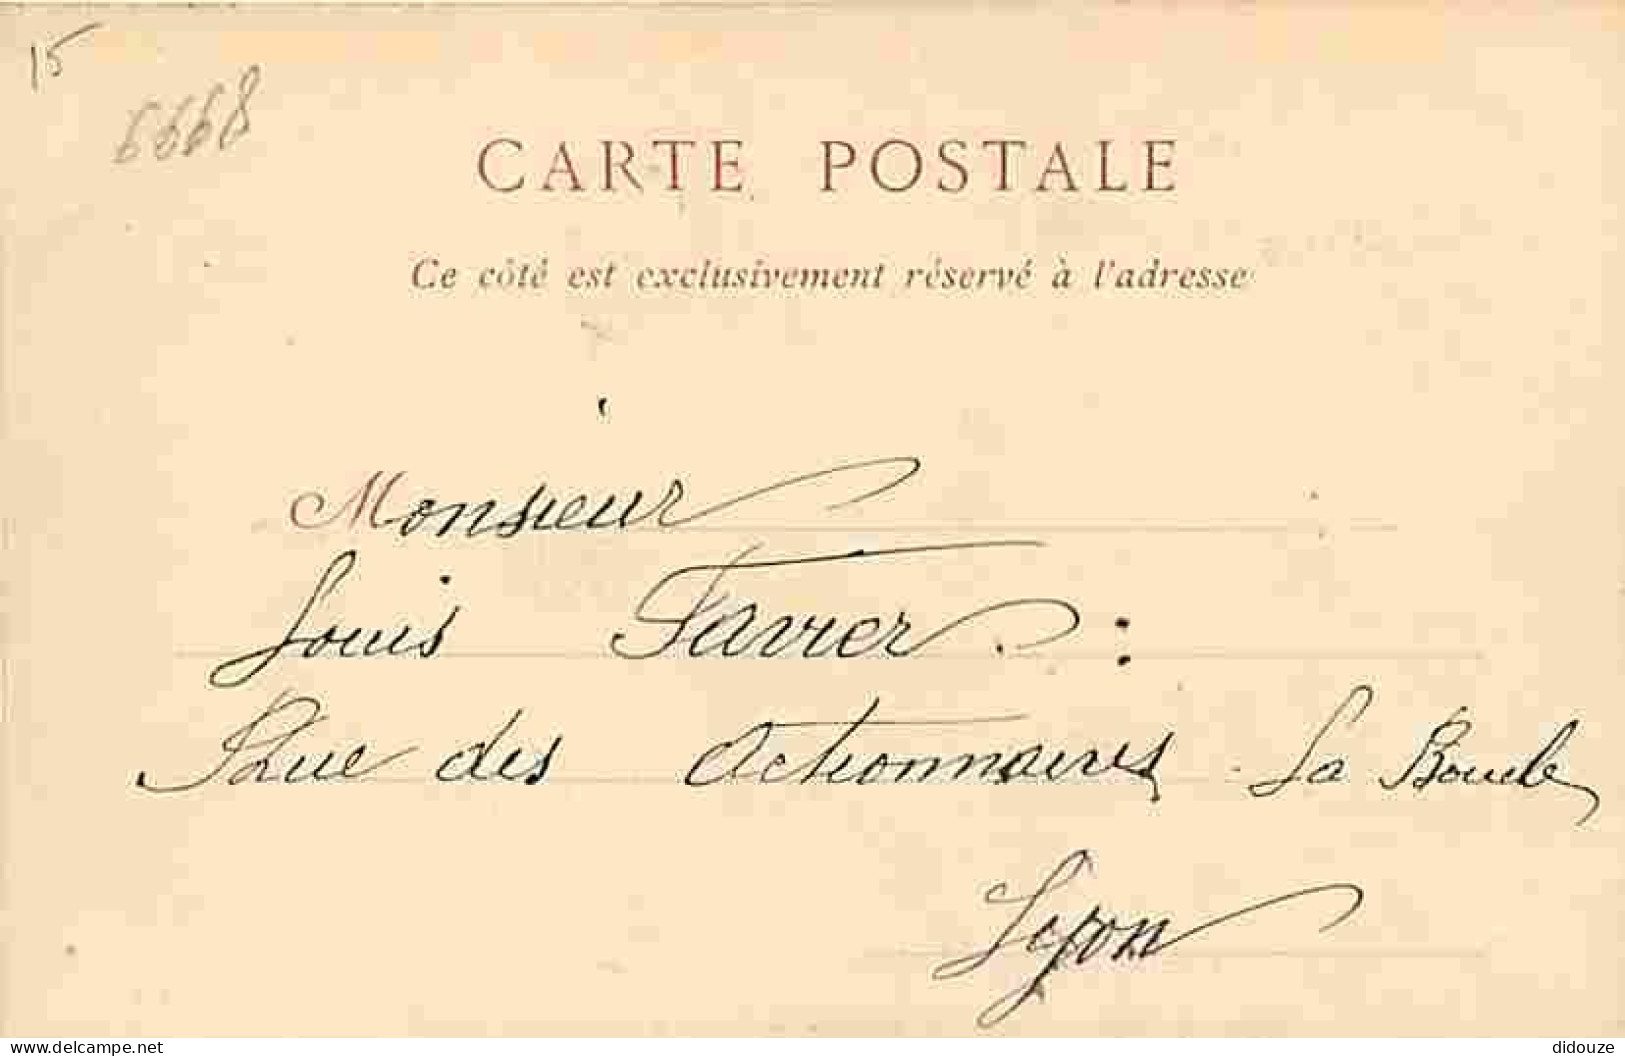 15
6668
CARTE POSTALE
Ce côté est exclusivement réservé à l'adresse
Monsieur
Louis Favier :
Rue des Actionnaires La Boucle
Lyon
delcampe.net
didouze